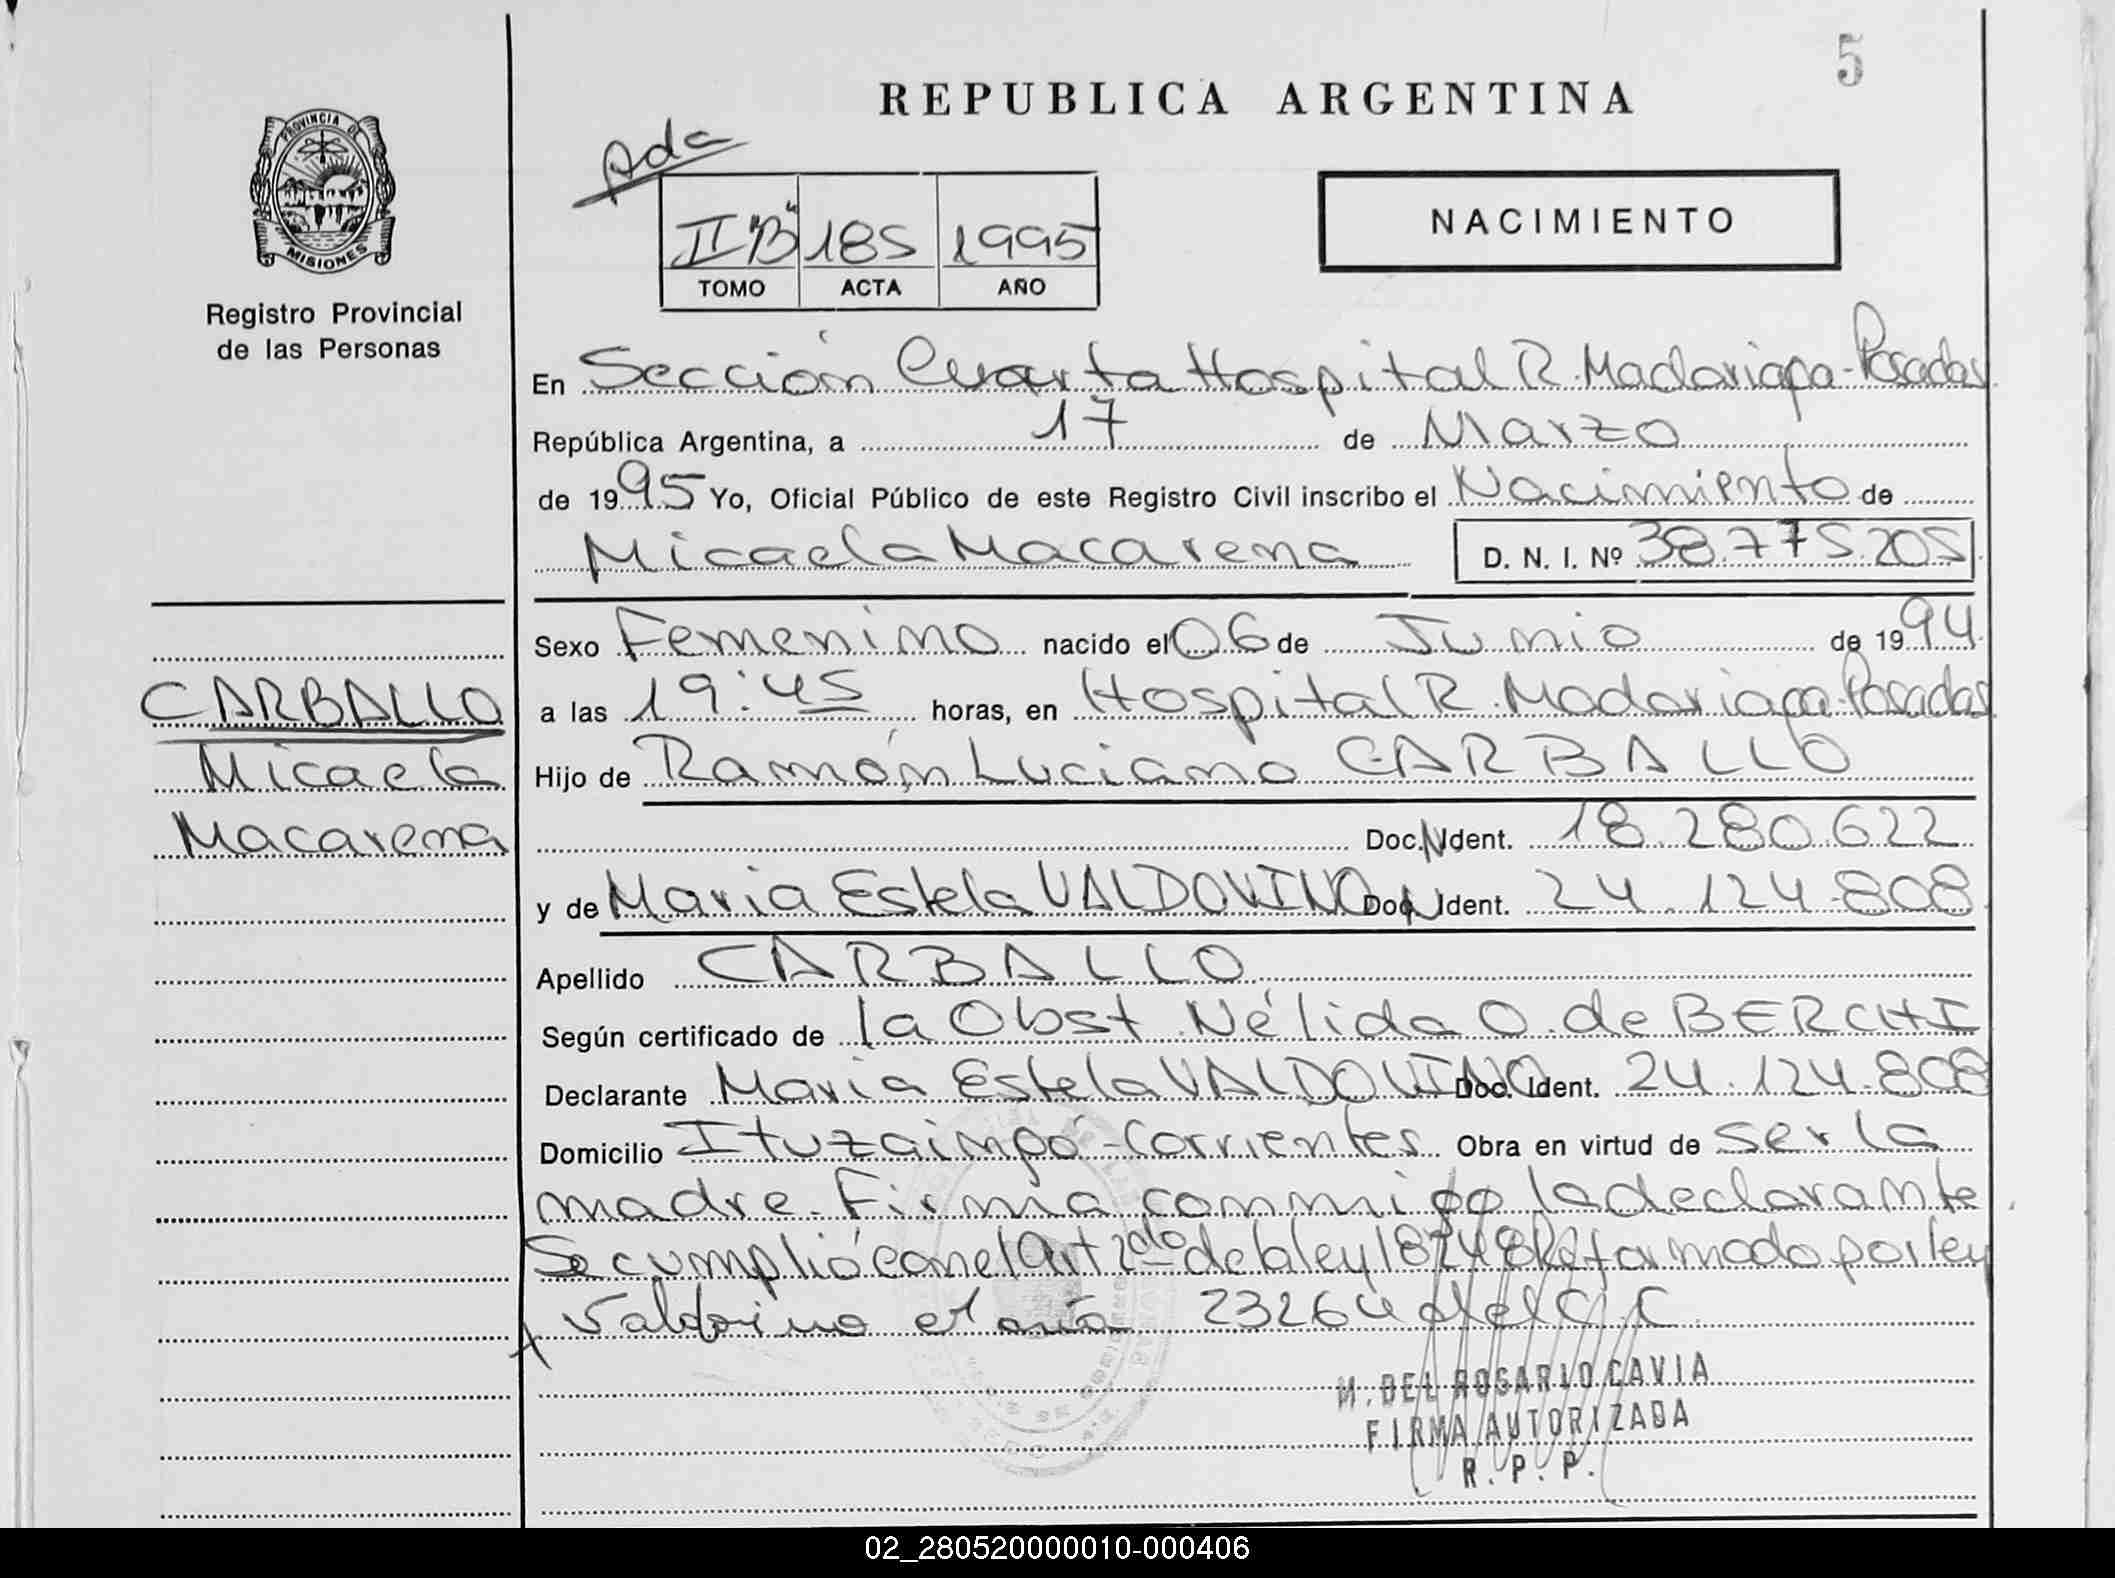 5
REPUBLICA ARGENTINA
PROVINCIA DE
MISIONES
Registro Provincial
de las Personas
Pda
II "B" 185 1995
TOMO ACTA AÑO
NACIMIENTO
En Sección Cuarta Hospital R. Madariaga - Posadas
República Argentina, a 17 de Marzo
de 1995 Yo, Oficial Público de este Registro Civil inscribo el Nacimiento de
Micaela Macarena D. N. I. Nº 38.775.205
Sexo Femenino nacido el 06 de Junio de 1994
CARBALLO
a las 19:45 horas, en Hospital R. Madariaga - Posadas
Micaela
Hijo de Ramón Luciano CARBALLO
Macarena
Doc. N Ident. 18.280.622
y de Maria Estela VALDOVINO Doc. N Ident. 24.124.808
Apellido CARBALLO
Según certificado de la Obst. Nélida O. de BERCHI
Declarante Maria Estela VALDOVINO Doc. Ident. 24.124.808
Domicilio Ituzaimgó - Corrientes Obra en virtud de ser la
madre. Firma conmigo la declarante
Se cumplió con el Art 2do de la ley 18248 Reformado por ley
x Valdovino 23264 del C. C
M. DEL ROSARIO CAVIA
FIRMA AUTORIZADA
R. P. P.
02_280520000010-000406